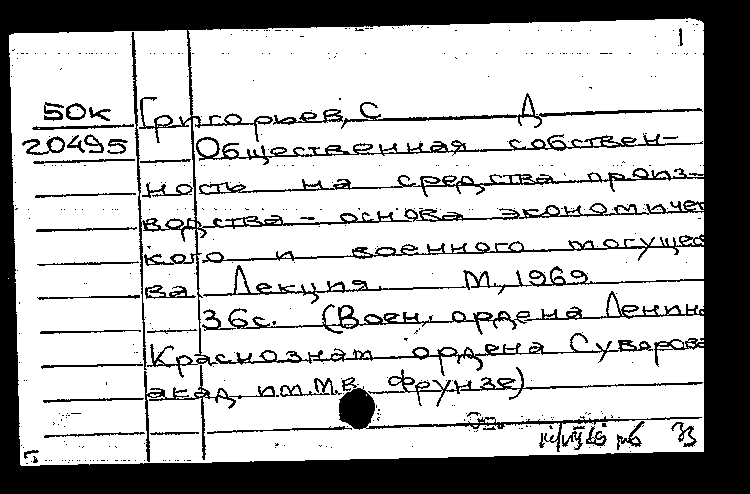 1
50к Григорьев, С Д
20495 Общественная собствен-
ность на средства произ-
водства - основа экономичес
кого и военного могущес
ва Лекция. М., 1969
36с. (Воен. ордена Ленина
Краснознам ордена Суворова
акад. им. М.В. Фрунзе)
33
5